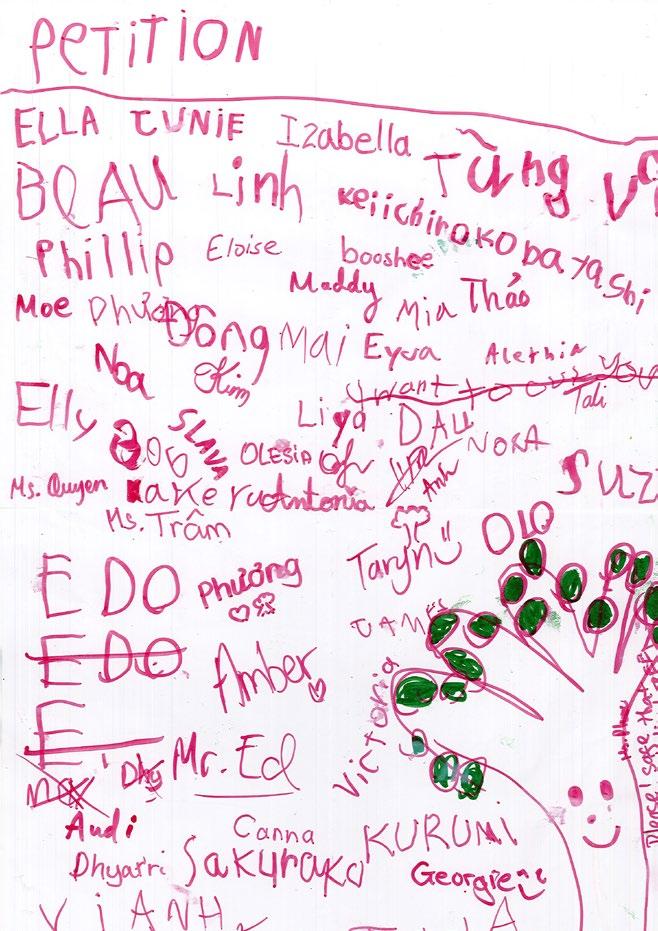 PETITION
ELLA JUNIE Izabella
BEAU Linh Tùng
Keiichiro Kobayashi
Phillip Eloise booshee
Maddy Mia Thảo
Moe Phương Đông Mai Eyva Alethia
Noa Kim
I want to
Tali
Elly Liya DALL NORA
SLAVA OLESIA
Anh
Ms. Quyen Kakeru Antonia
Ms. Trâm
SUZ
OLO
Taryn
EDO Phương
JAMES
EDO Amber
Victoria
E
Mr. Ed
Audi Canna KURUMI
Dhyatri Sakurako Georgie
VI ANH
Please! save that